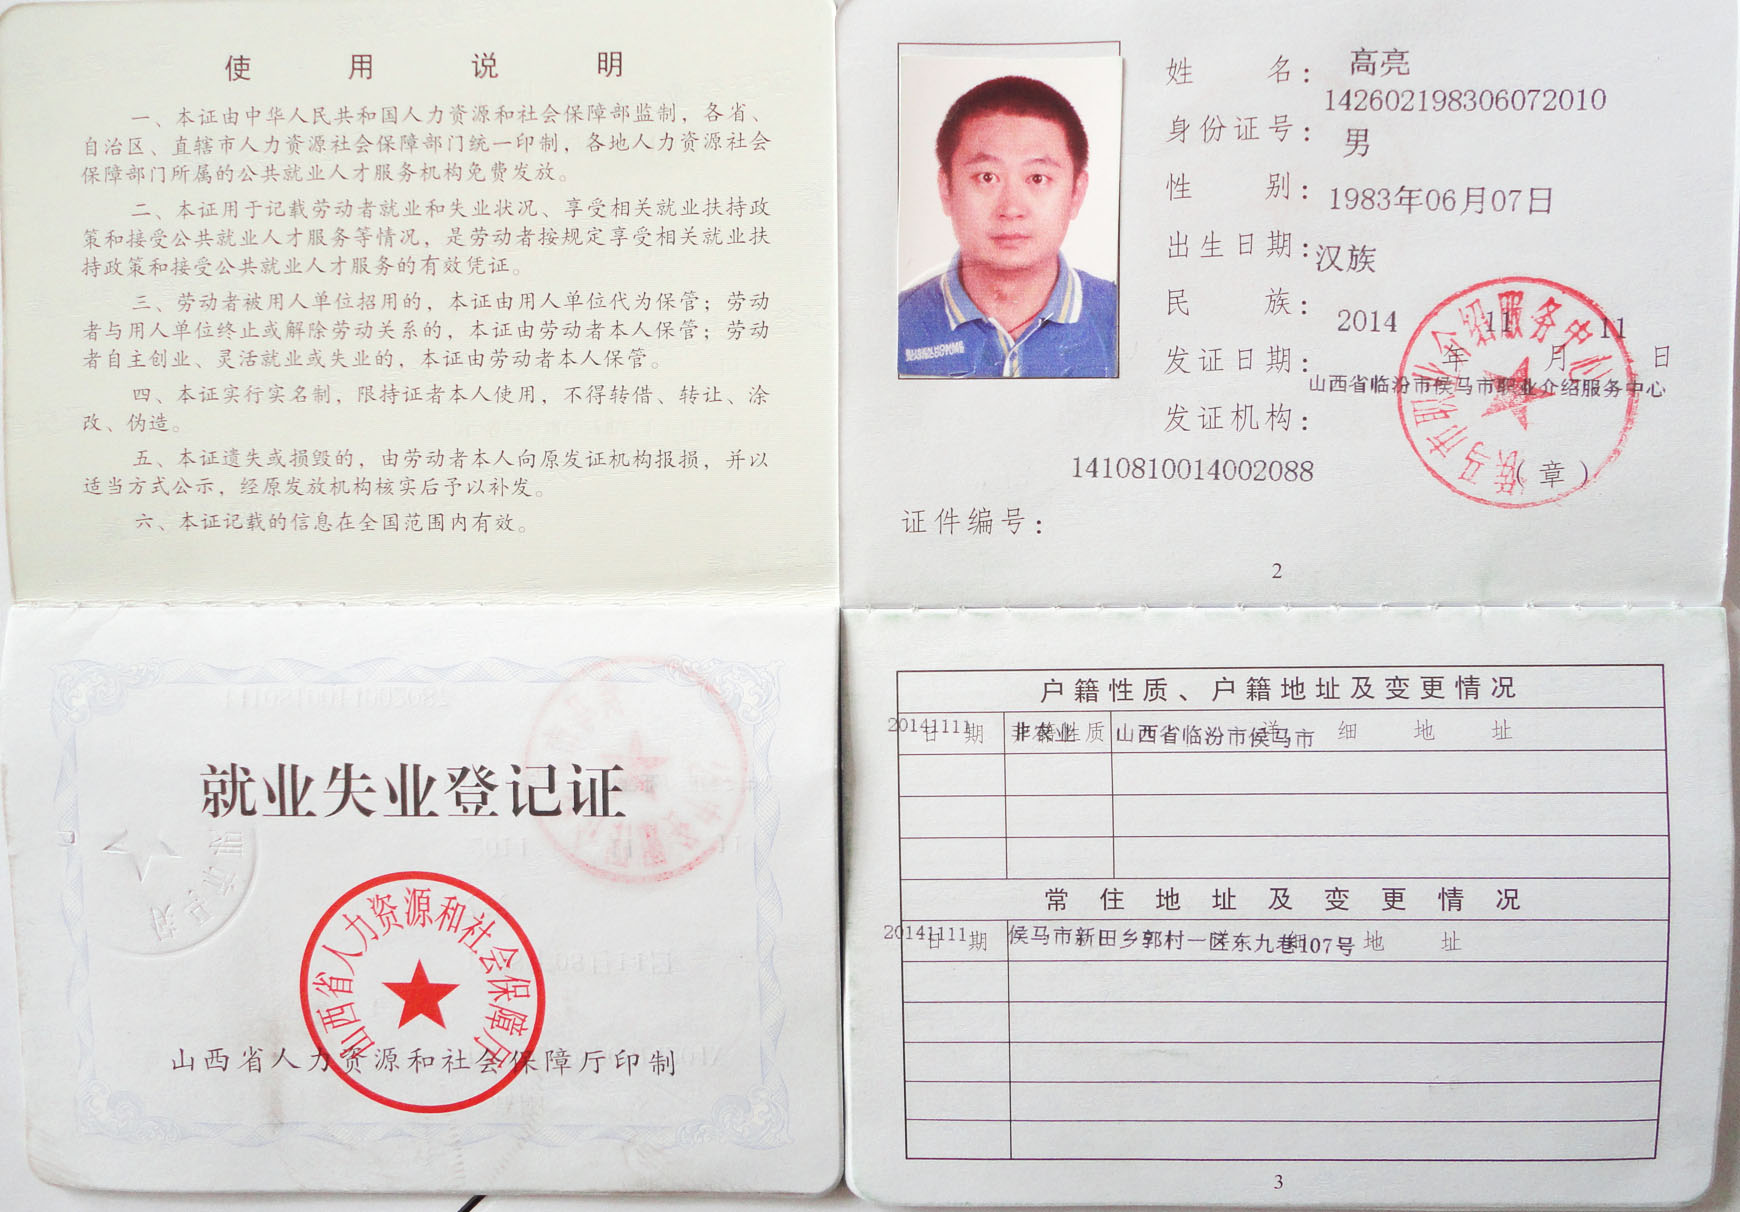 使用说明
一、本证由中华人民共和国人力资源和社会保障部监制，各省、
自治区、直辖市人力资源社会保障部门统一印制，各地人力资源社会
保障部门所属的公共就业人才服务机构免费发放。
二、本证用于记载劳动者就业和失业状况、享受相关就业扶持政
策和接受公共就业人才服务等情况，是劳动者按规定享受相关就业扶
持政策和接受公共就业人才服务的有效凭证。
三、劳动者被用人单位招用的，本证由用人单位代为保管；劳动
者与用人单位终止或解除劳动关系的，本证由劳动者本人保管；劳动
者自主创业、灵活就业或失业的，本证由劳动者本人保管。
四、本证实行实名制，限持证者本人使用，不得转借、转让、涂
改、伪造。
五、本证遗失或损毁的，由劳动者本人向原发证机构报损，并以
适当方式公示，经原发放机构核实后予以补发。
六、本证记载的信息在全国范围内有效。
就业失业登记证
山西省人力资源和社会保障厅
山西省人力资源和社会保障厅印制
姓名：高亮
142602198306072010
身份证号：男
性别：1983年06月07日
出生日期：汉族
民族：2014 11 11
发证日期： 年 月 日
山西省临汾市侯马市职业介绍服务中心
发证机构：
侯马市职业介绍服务中心
（章）
1410810014002088
证件编号：
2
户籍性质、户籍地址及变更情况
日期 户籍性质 详细地址
20141111 非农业 山西省临汾市侯马市
常住地址及变更情况
日期 详细地址
20141111 侯马市新田乡郭村一区东九巷107号
3